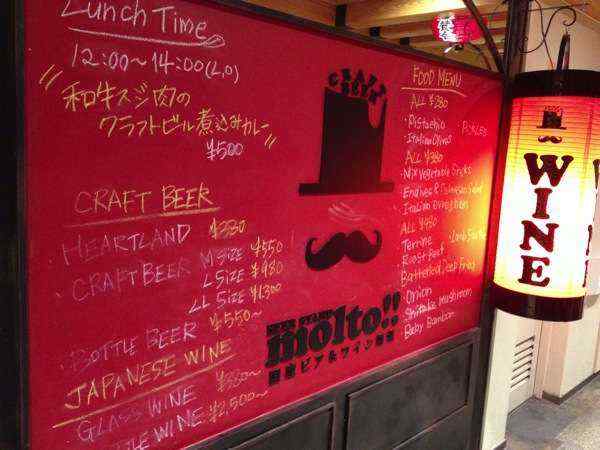 Lunch Time
12:00~14:00(L.O)
"和牛スジ肉の
クラフトビール煮込みカレー"
¥500
CRAFT BEER
HEARTLAND ¥380
・CRAFT BEER M SIZE ¥550
L SIZE ¥980
LL SIZE ¥1,300
・BOTTLE BEER ¥550~
JAPANESE WINE
・GLASS WINE ¥380~
WINE ¥2,500~
CRAFT
BEER
BEER STAND
molto!!
国産ビア&ワイン
FOOD MENU
ALL ¥280
・Pistachio Pickles
・Italian Olives
ALL ¥380
・Mix Vegetable Sticks
Endives &
Italian
ALL ¥480
Terrine
Roast Beef
Battered Deep Fried
Onion
Shiitake Mushroom
Baby Bamboo
WINE